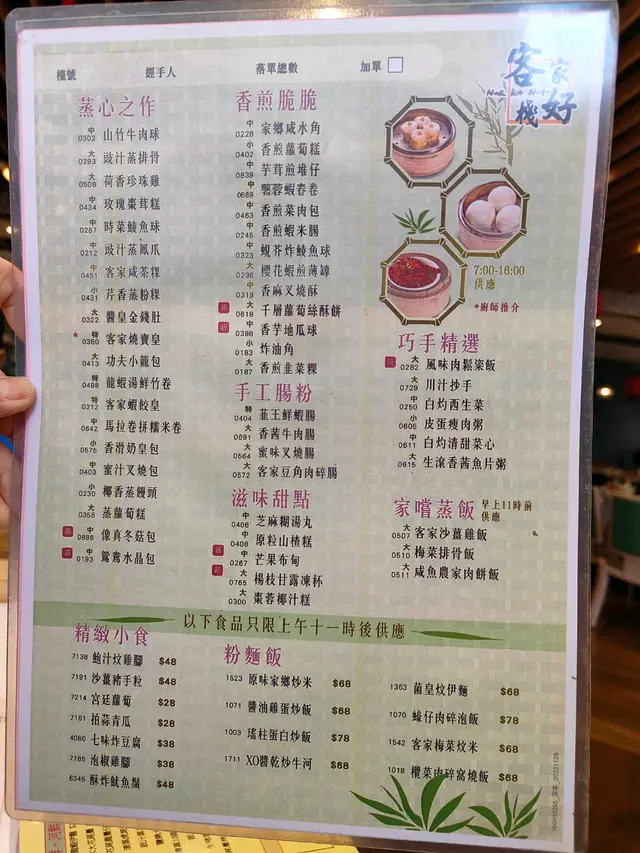 檯號 經手人 落單總數 加單
客家棧好
蒸心之作
中 0302 山竹牛肉球
大 0293 豉汁蒸排骨
大 0508 荷香珍珠雞
中 0434 玫瑰棗茸糕
中 0287 時菜鯪魚球
中 0212 豉汁蒸鳳爪
中 0451 客家咸茶粿
小 0431 芹香蒸粉粿
大 0322 醬皇金錢肚
* 特 0360 客家燒賣皇
大 0413 功夫小籠包
特 0498 龍蝦湯鮮竹卷
特 0312 客家蝦餃皇
中 0642 馬拉卷拼糯米卷
小 0575 香滑奶皇包
中 0403 蜜汁叉燒包
小 0230 椰香蒸饅頭
大 0358 蒸蘿蔔糕
中 0886 像真冬菇包
中 0193 鴛鴦水晶包
香煎脆脆
中 0228 家鄉咸水角
小 0402 香煎蘿蔔糕
中 0839 芋茸煎堆仔
中 0689 鴨蓉蝦春卷
中 0463 香煎菜肉包
中 0245 香煎蝦米腸
中 0323 蜆芥炸鯪魚球
大 0236 櫻花蝦煎薄罉
中 0319 香麻叉燒酥
大 0618 千層蘿蔔絲酥餅
中 0398 香芋地瓜球
小 0183 炸油角
大 0187 香煎韭菜粿
手工腸粉
特 0404 韮王鮮蝦腸
大 0691 香茜牛肉腸
大 0564 蜜味叉燒腸
大 0572 客家豆角肉碎腸
滋味甜點
中 0406 芝麻糊湯丸
中 0408 原粒山楂糕
中 0267 芒果布甸
大 0765 楊枝甘露凍杯
大 0300 棗蓉椰汁糕
7:00-16:00
供應
*廚師推介
巧手精選
大 0282 風味肉鬆粢飯
大 0729 川汁抄手
中 0250 白灼西生菜
小 0605 皮蛋瘦肉粥
中 0611 白灼清甜菜心
大 0615 生滾香茜魚片粥
家嚐蒸飯 早上11時前供應
大 0507 客家沙薑雞飯
大 0510 梅菜排骨飯
大 0511 咸魚農家肉餅飯
以下食品只限上午十一時後供應
精緻小食
7138 鮑汁炆雞腳 $48
7191 沙薑豬手粒 $48
7214 宮廷蘿蔔 $28
7161 拍蒜青瓜 $28
4080 七味炸豆腐 $38
7185 泡椒雞腳 $38
6345 酥炸魷魚鬚 $48
粉麵飯
1523 原味家鄉炒米 $68
1071 醬油雞蛋炒飯 $68
1003 瑤柱蛋白炒飯 $78
1711 XO醬乾炒牛河 $68
1363 菌皇炆伊麵 $68
1070 蠔仔肉碎泡飯 $78
1542 客家梅菜炆米 $68
1018 欖菜肉碎窩燒飯 $68